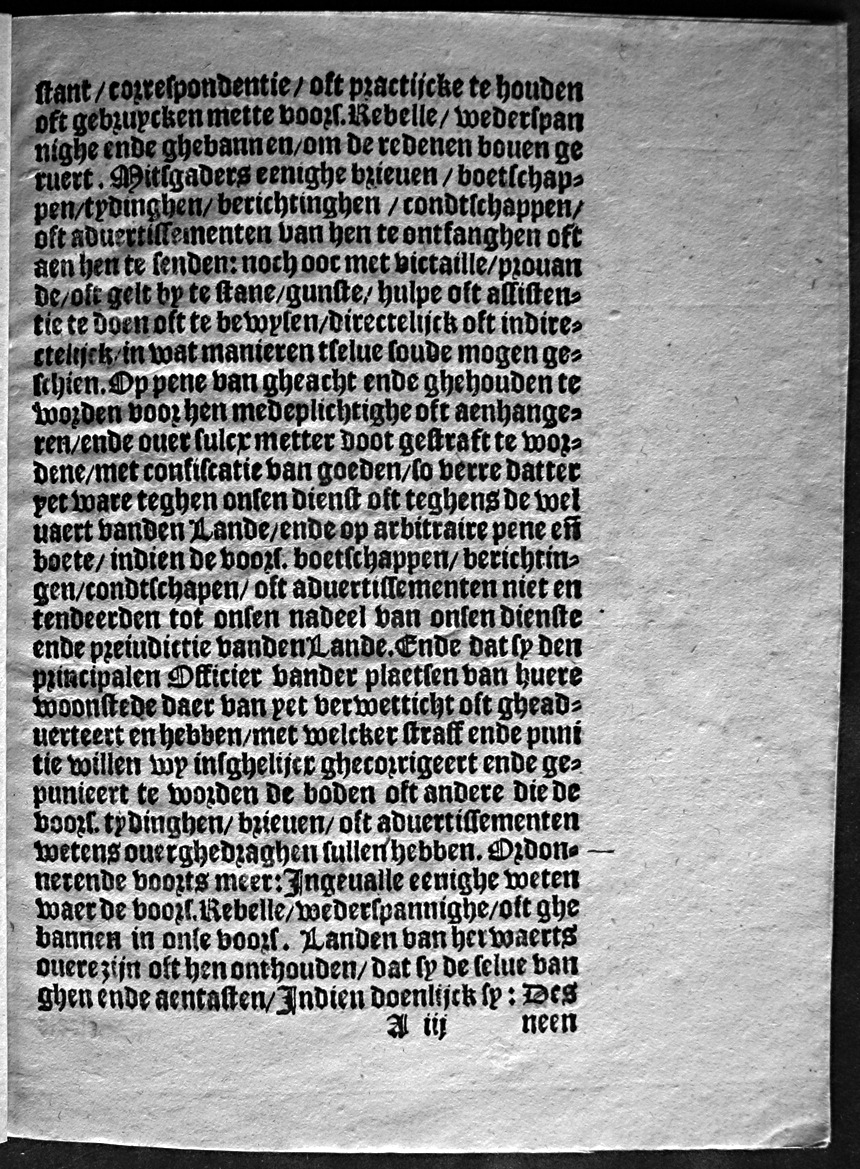 stant/correspondentie/oft practijcke te houden
oft gebruycken mette voors. Rebelle/wederspan
nighe ende ghebannen/om de redenen bouen ge
ruert. Mitsgaders eenighe brieuen/boetschap-
pen/tydinghen/berichtinghen/condtschappen/
oft aduertissementen van hen te ontfanghen oft
aen hen te senden: noch ooc met victaille/prouan
de/oft gelt by te stane/gunste/hulpe oft assisten-
tie te doen oft te bewysen/directelijck oft indire-
ctelijck/in wat manieren tselue soude mogen ge-
schien. Op pene van gheacht ende ghehouden te
worden voor hen medeplichtighe oft aenhange-
ren/ende ouer sulcx metter doot gestraft te wor-
dene/met confiscatie van goeden/so verre datter
yet ware teghen onsen dienst oft teghens de wel
uaert vanden Lande/ende op arbitraire pene eñ
boete/indien de voors. boetschappen/berichtin-
gen/condtschapen/oft aduertissementen niet en
tendeerden tot onsen nadeel van onsen dienste
ende preiudictie vanden Lande. Ende dat sy den
principalen Officier vander plaetsen van huere
woonstede daer van yet verwetticht oft ghead-
uerteert en hebben/met welcker straff ende puni
tie willen wy insghelijcx ghecorrigeert ende ge-
punieert te worden de boden oft andere die de
voors. tydinghen/brieuen/oft aduertissementen
wetens ouerghedraghen sullen hebben. Ordon-
nerende voorts meer: Ingeualle eenighe weten
waer de voors. Rebelle/wederspannighe/oft ghe
bannen in onse voors. Landen van herwaerts
ouere zijn oft hen onthouden/dat sy de selue van
ghen ende aentasten/Indien doenlijck sy: Des
A iij neen